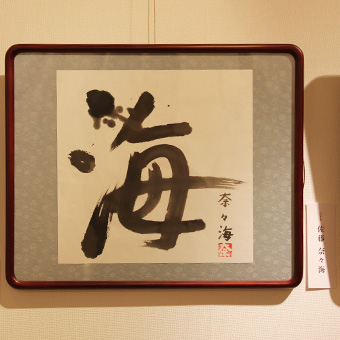 海
奈々海
佐藤 奈々海